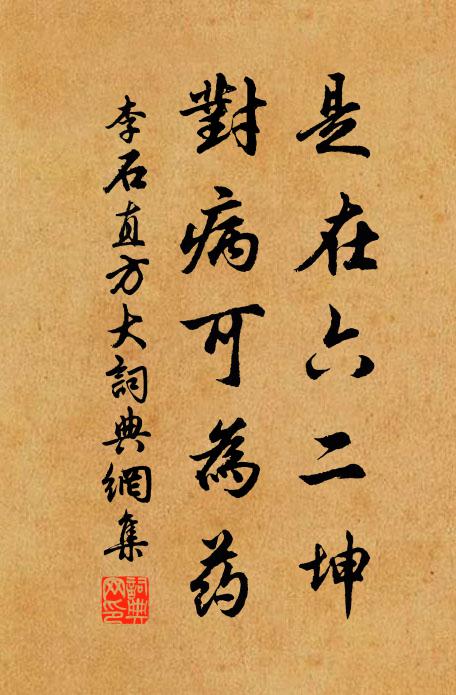 是在六二坤
對病可為药
李石直方大詞典網集
詞典网印